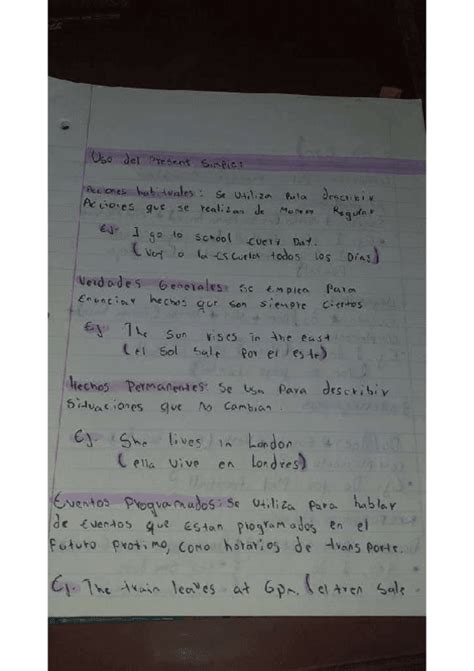 Uso del Present Simple:
Acciones habituales: Se Utiliza Para describir
Acciones que se realizan de Manera Regular
Ej: I go to school every Day.
(Voy a la Escuela todos los Días)
Verdades Generales: Se Emplea Para
Enunciar hechos que son siempre ciertos
Ej The sun rises in the east
(el sol sale por el este)
Hechos Permanentes: Se Usa Para describir
Situaciones que No cambian.
Ej. She lives in London
(ella vive en londres)
Eventos Programados: Se Utiliza Para hablar
de eventos que Estan programados en el
Futuro Protimo, como horarios de transporte.
Ej. The train leaves at 6pm. (el tren Sale.